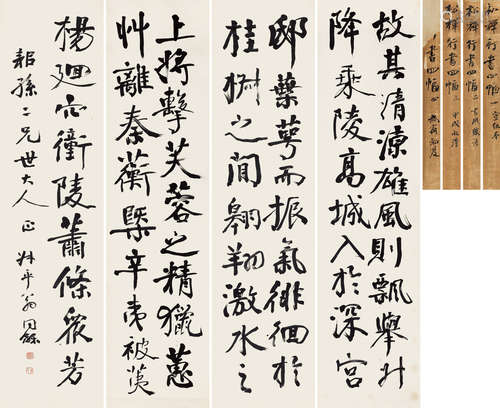 故其清涼雄風則飄舉升
降乘陵高城入於深宮
邸而振氣徘徊於
桂樹之間翱翔激水之
上將擊芙蓉之精獵蕙
艸離秦蘅槩辛夷被荑
楊迴穴衝陵蕭條衆芳
孫二兄世大人正 叔平翁同龢
松禪行書四幅
松禪行書四幅二
松禪行書四幅三
書四幅四